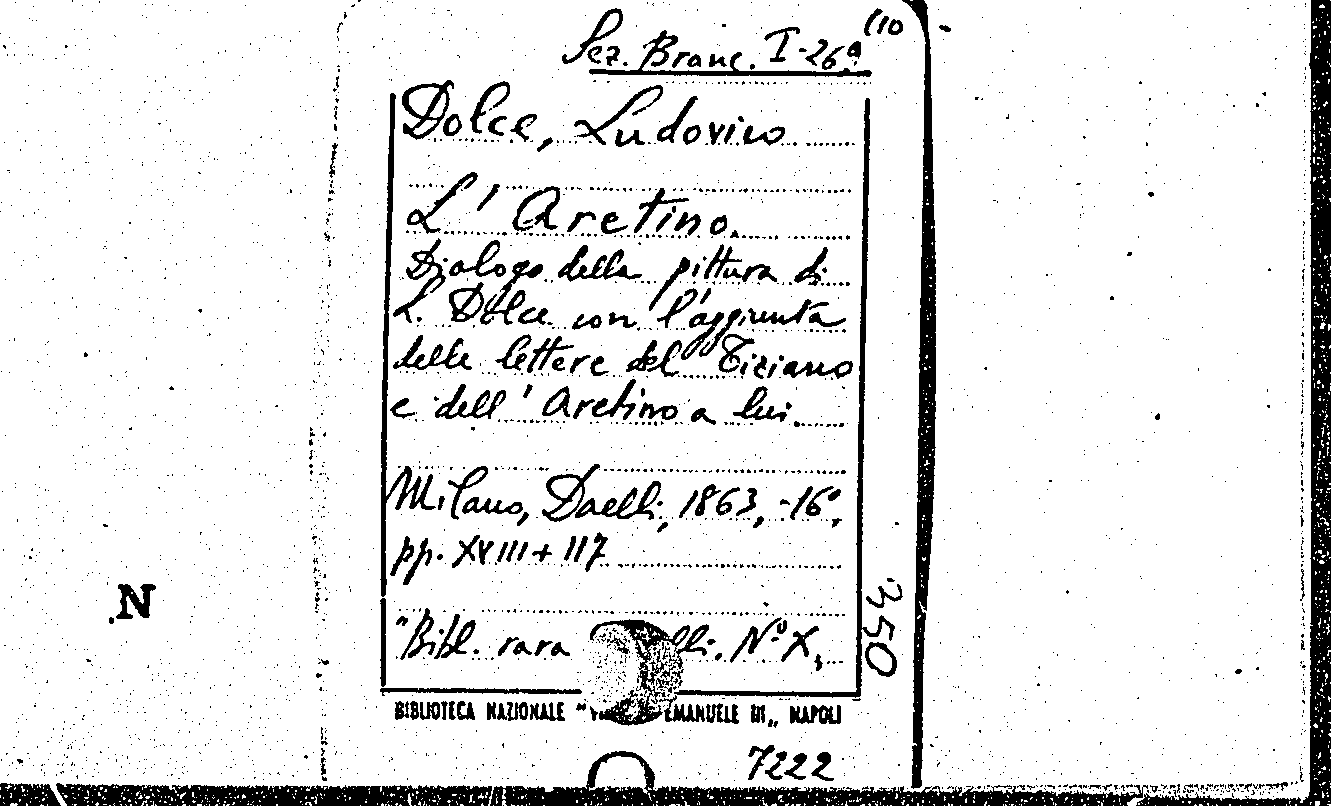 (10
Sez. Branc. I-26ª
Dolce, Ludovico
L' Aretino.
Dialogo della pittura di
L. Dolce con l'aggiunta
delle lettere del Tiziano
e dell' Aretino a lui.
Milano, Daelli, 1863, -16º,
pp. XVIII + 117
"Bibl. rara lli. Nº X,
350
N
BIBLIOTECA NAZIONALE " EMANUELE III „ NAPOLI
7222